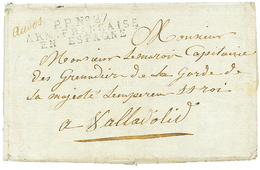 Aurios
P.P.Nº 27
ARMÉE FRANÇAISE
EN ESPAGNE
Monsieur
Monsieur Lemarois Capitaine
des Grenadiers de La Garde de
sa majesté Lempereur et roi
a Valladolid